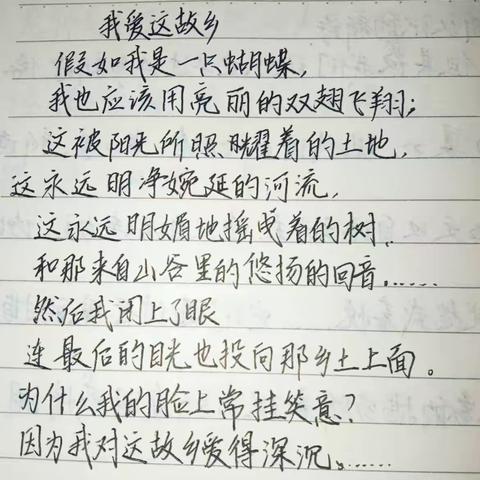 我爱这故乡
假如我是一只蝴蝶,
我也应该用亮丽的双翅飞翔;
这被阳光所照耀着的土地,
这永远明净婉延的河流,
这永远明媚地摇曳着的树,
和那来自山谷里的悠扬的回音......
然后我闭上了眼
连最后的目光也投向那乡土上面。
为什么我的脸上常挂笑意?
因为我对这故乡爱得深沉......